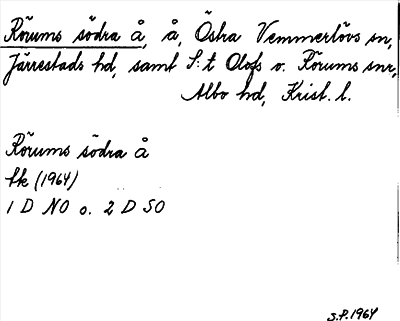 Rörums södra å, å, Östra Vemmerlövs sn,
Järrestads hd, samt S:t Olofs o. Rörums snr,
Albo hd, Krist. l.
Rörums södra å
Ek (1964)
1 D NO o. 2 D SO
S.P. 1964